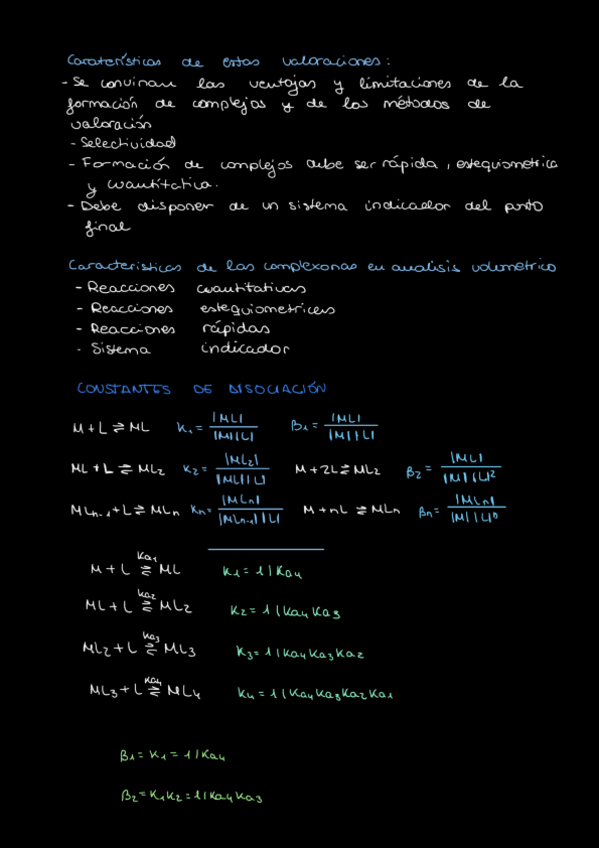 Caraterísticas de estas valoraciones:
- Se convinan las ventajas y limitaciones de la
formación de complejos y de los métodos de
valoración
- Selectividad
- Formación de complejos debe ser rápida, estequiometrica
y cuantitativa.
- Debe disponer de un sistema indicador del punto
final
Caracteristicas de las complexonas en analisis volumetrico
- Reacciones cuantitativas
- Reacciones estequiometricas
- Reacciones rápidas
- Sistema indicador
CONSTANTES DE DISOCIACIÓN
M + L ⇌ ML K₁ = |ML| / |M||L| β₁ = |ML| / |M||L|
ML + L ⇌ ML₂ K₂ = |ML₂| / |ML||L| M + 2L ⇌ ML₂ β₂ = |ML| / |M||L|²
MLₙ₋₁ + L ⇌ MLₙ Kₙ = |MLₙ| / |MLₙ₋₁||L| M + nL ⇌ MLₙ βₙ = |MLₙ| / |M||L|ⁿ
M + L ⇌ ML Ka₁ K₁ = 1/Ka₄
ML + L ⇌ ML₂ Ka₂ K₂ = 1/Ka₄Ka₃
ML₂ + L ⇌ ML₃ Ka₃ K₃ = 1/Ka₄Ka₃Ka₂
ML₃ + L ⇌ ML₄ Ka₄ K₄ = 1/Ka₄Ka₃Ka₂Ka₁
β₁ = K₁ = 1/Ka₄
β₂ = K₁K₂ = 1/Ka₄Ka₃